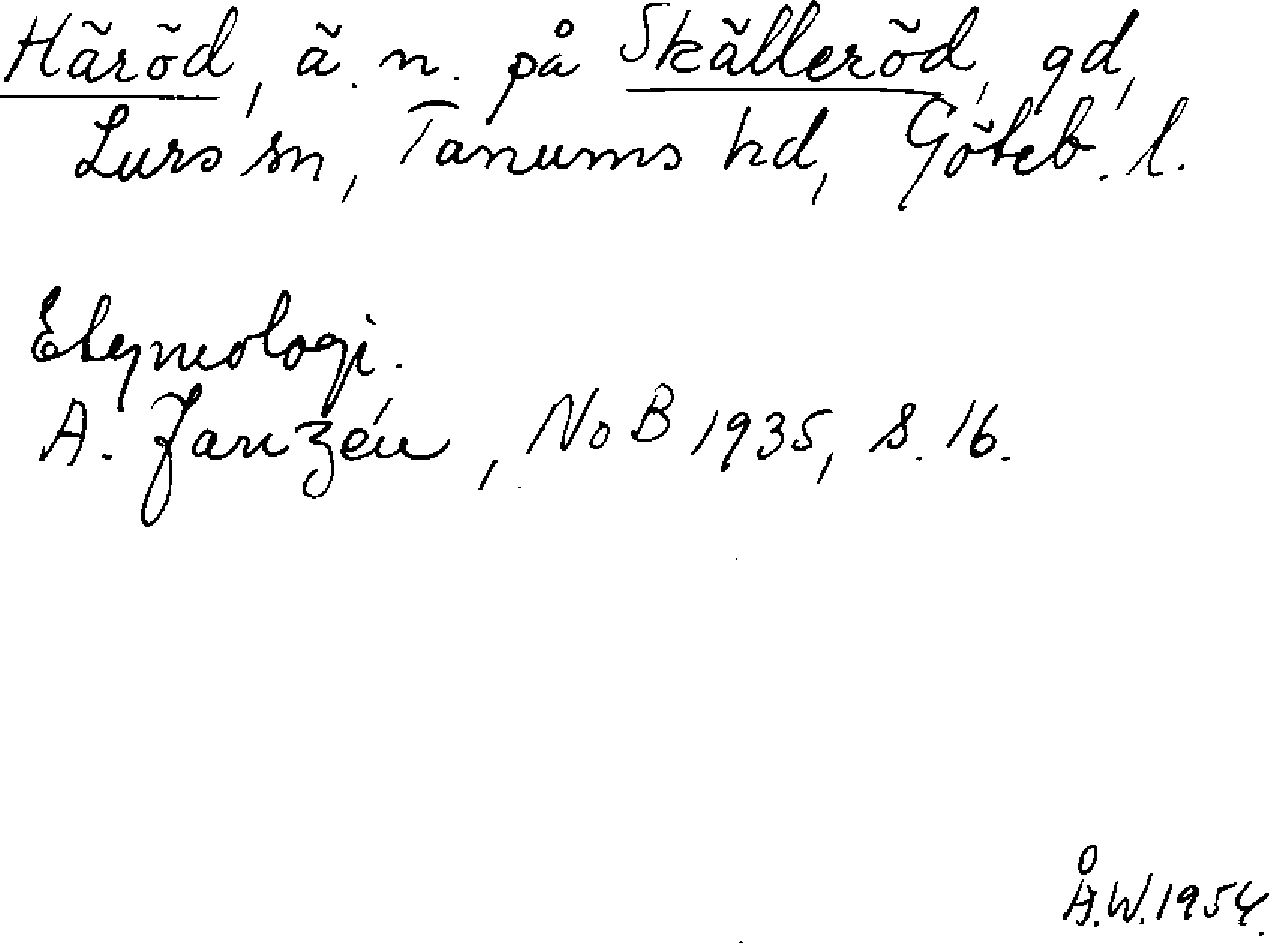 Häröd, ä. n. på Skälleröd, gd,
Lurs sn, Tanums hd, Göteb. l.
Etymologi.
A. Janzén, NoB 1935, s. 16.
Å.W. 1954.